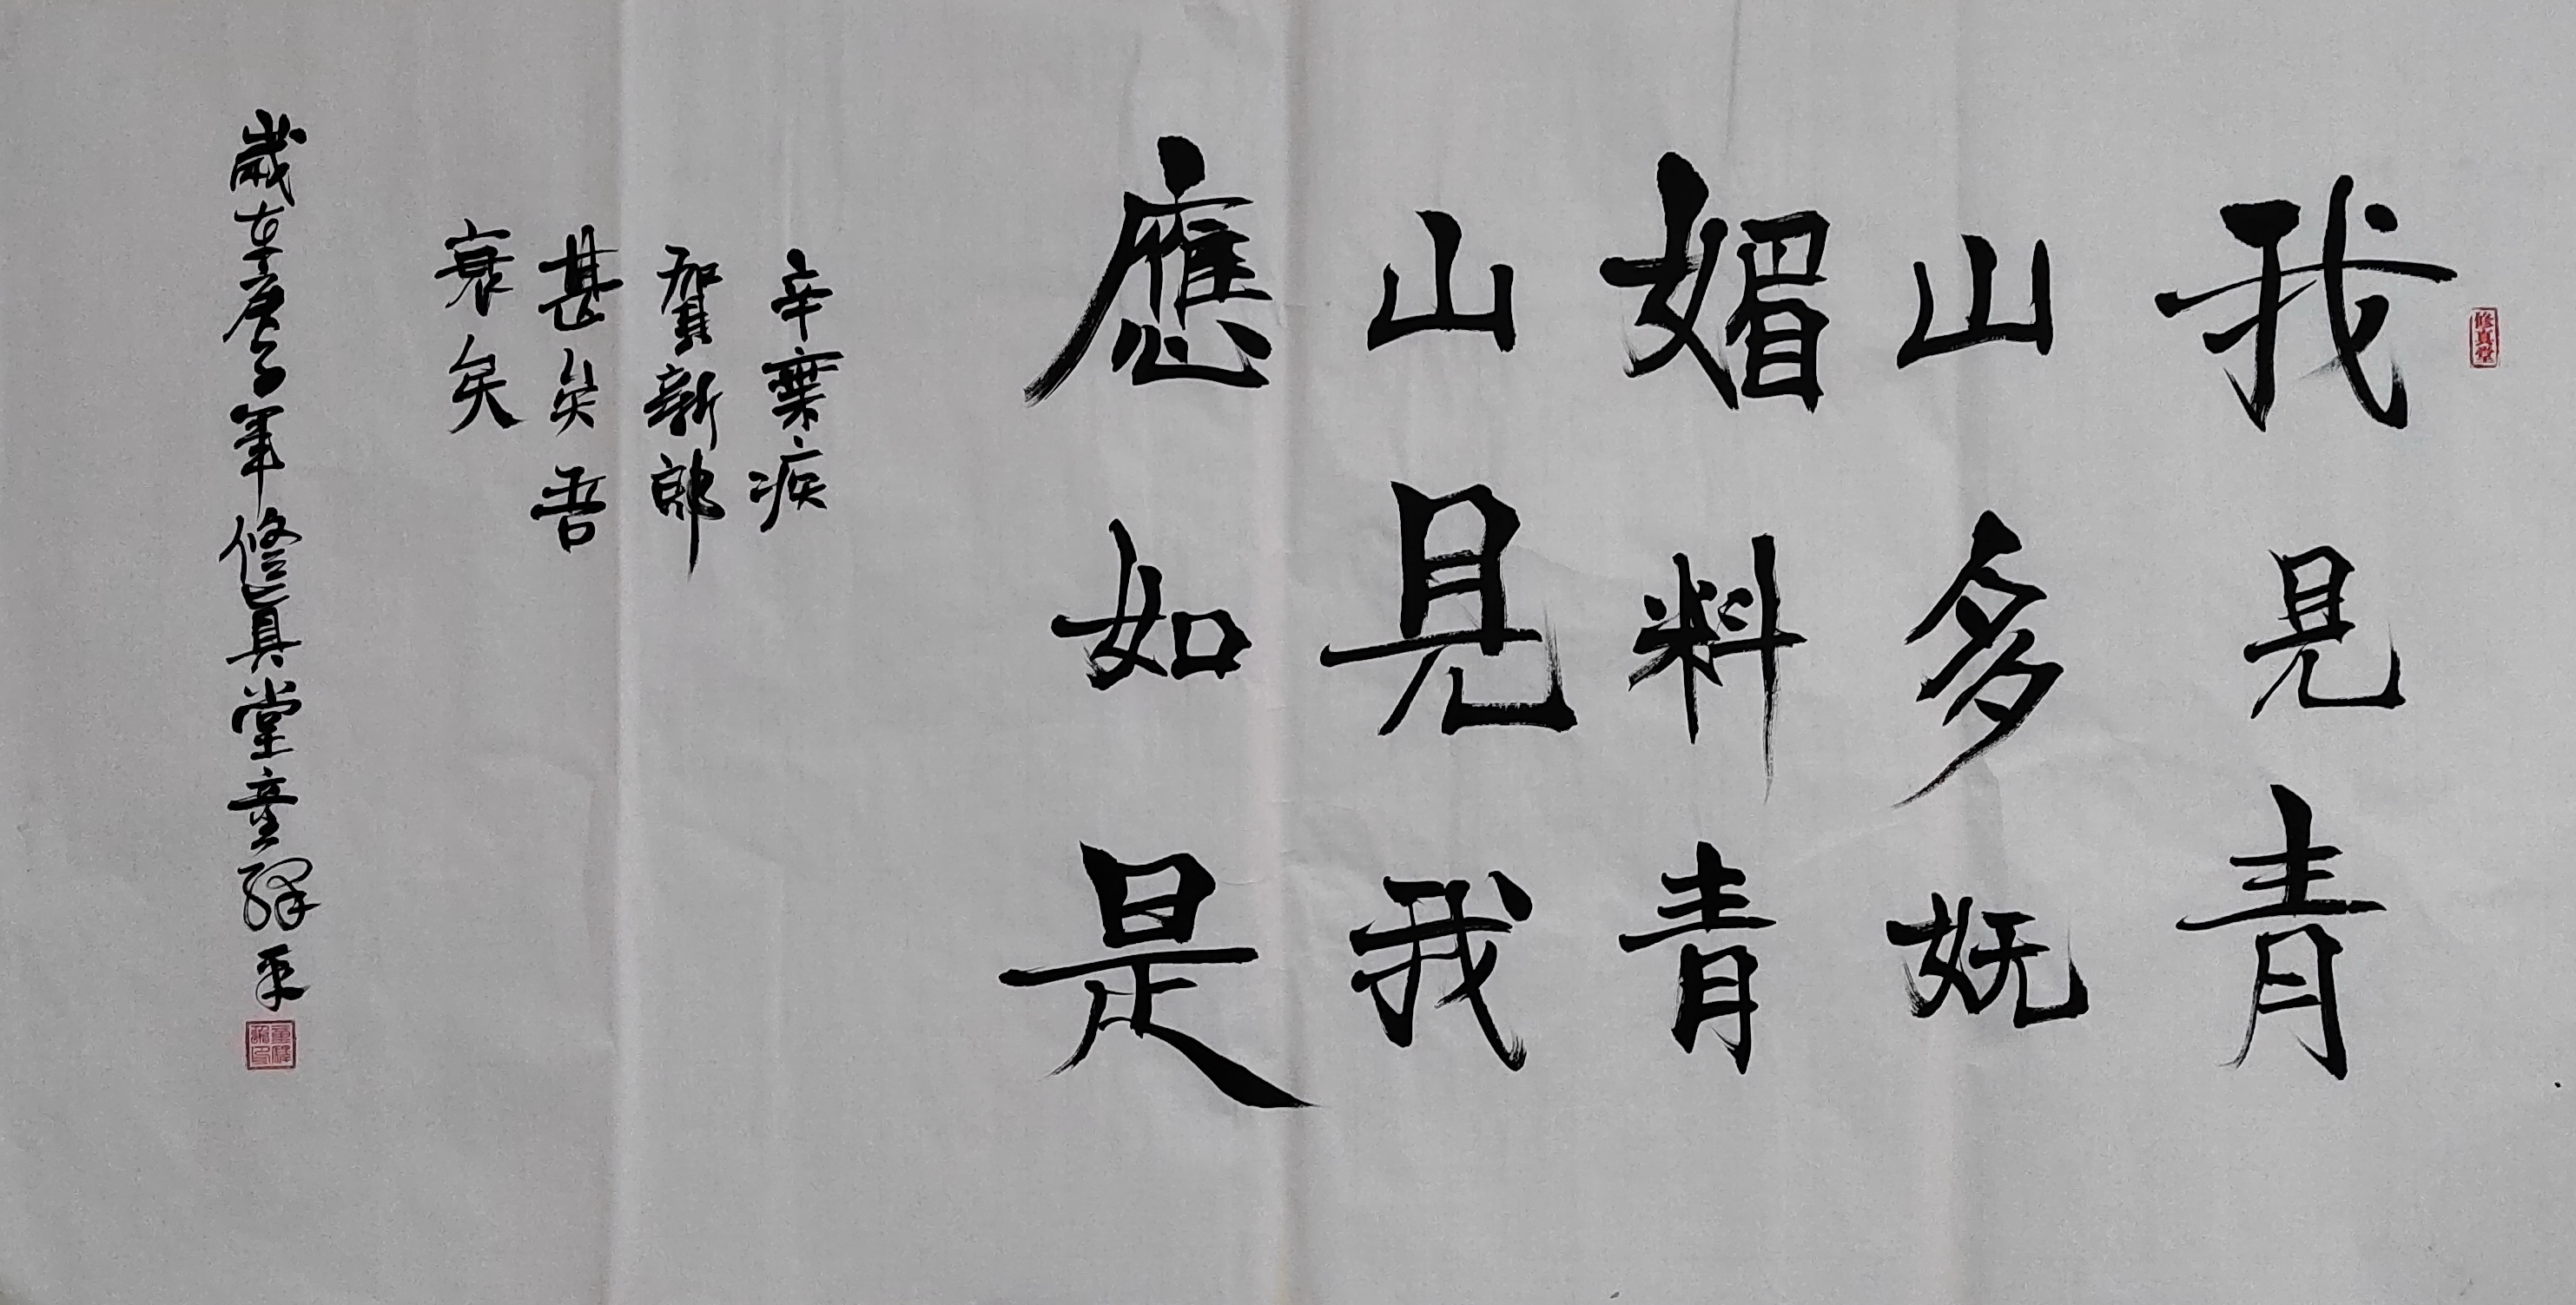 修真堂
我見青
山多妩
媚料青
山見我
應如是
辛棄疾
賀新郎
甚矣吾
衰矣
歲在庚子年修真堂童驛平